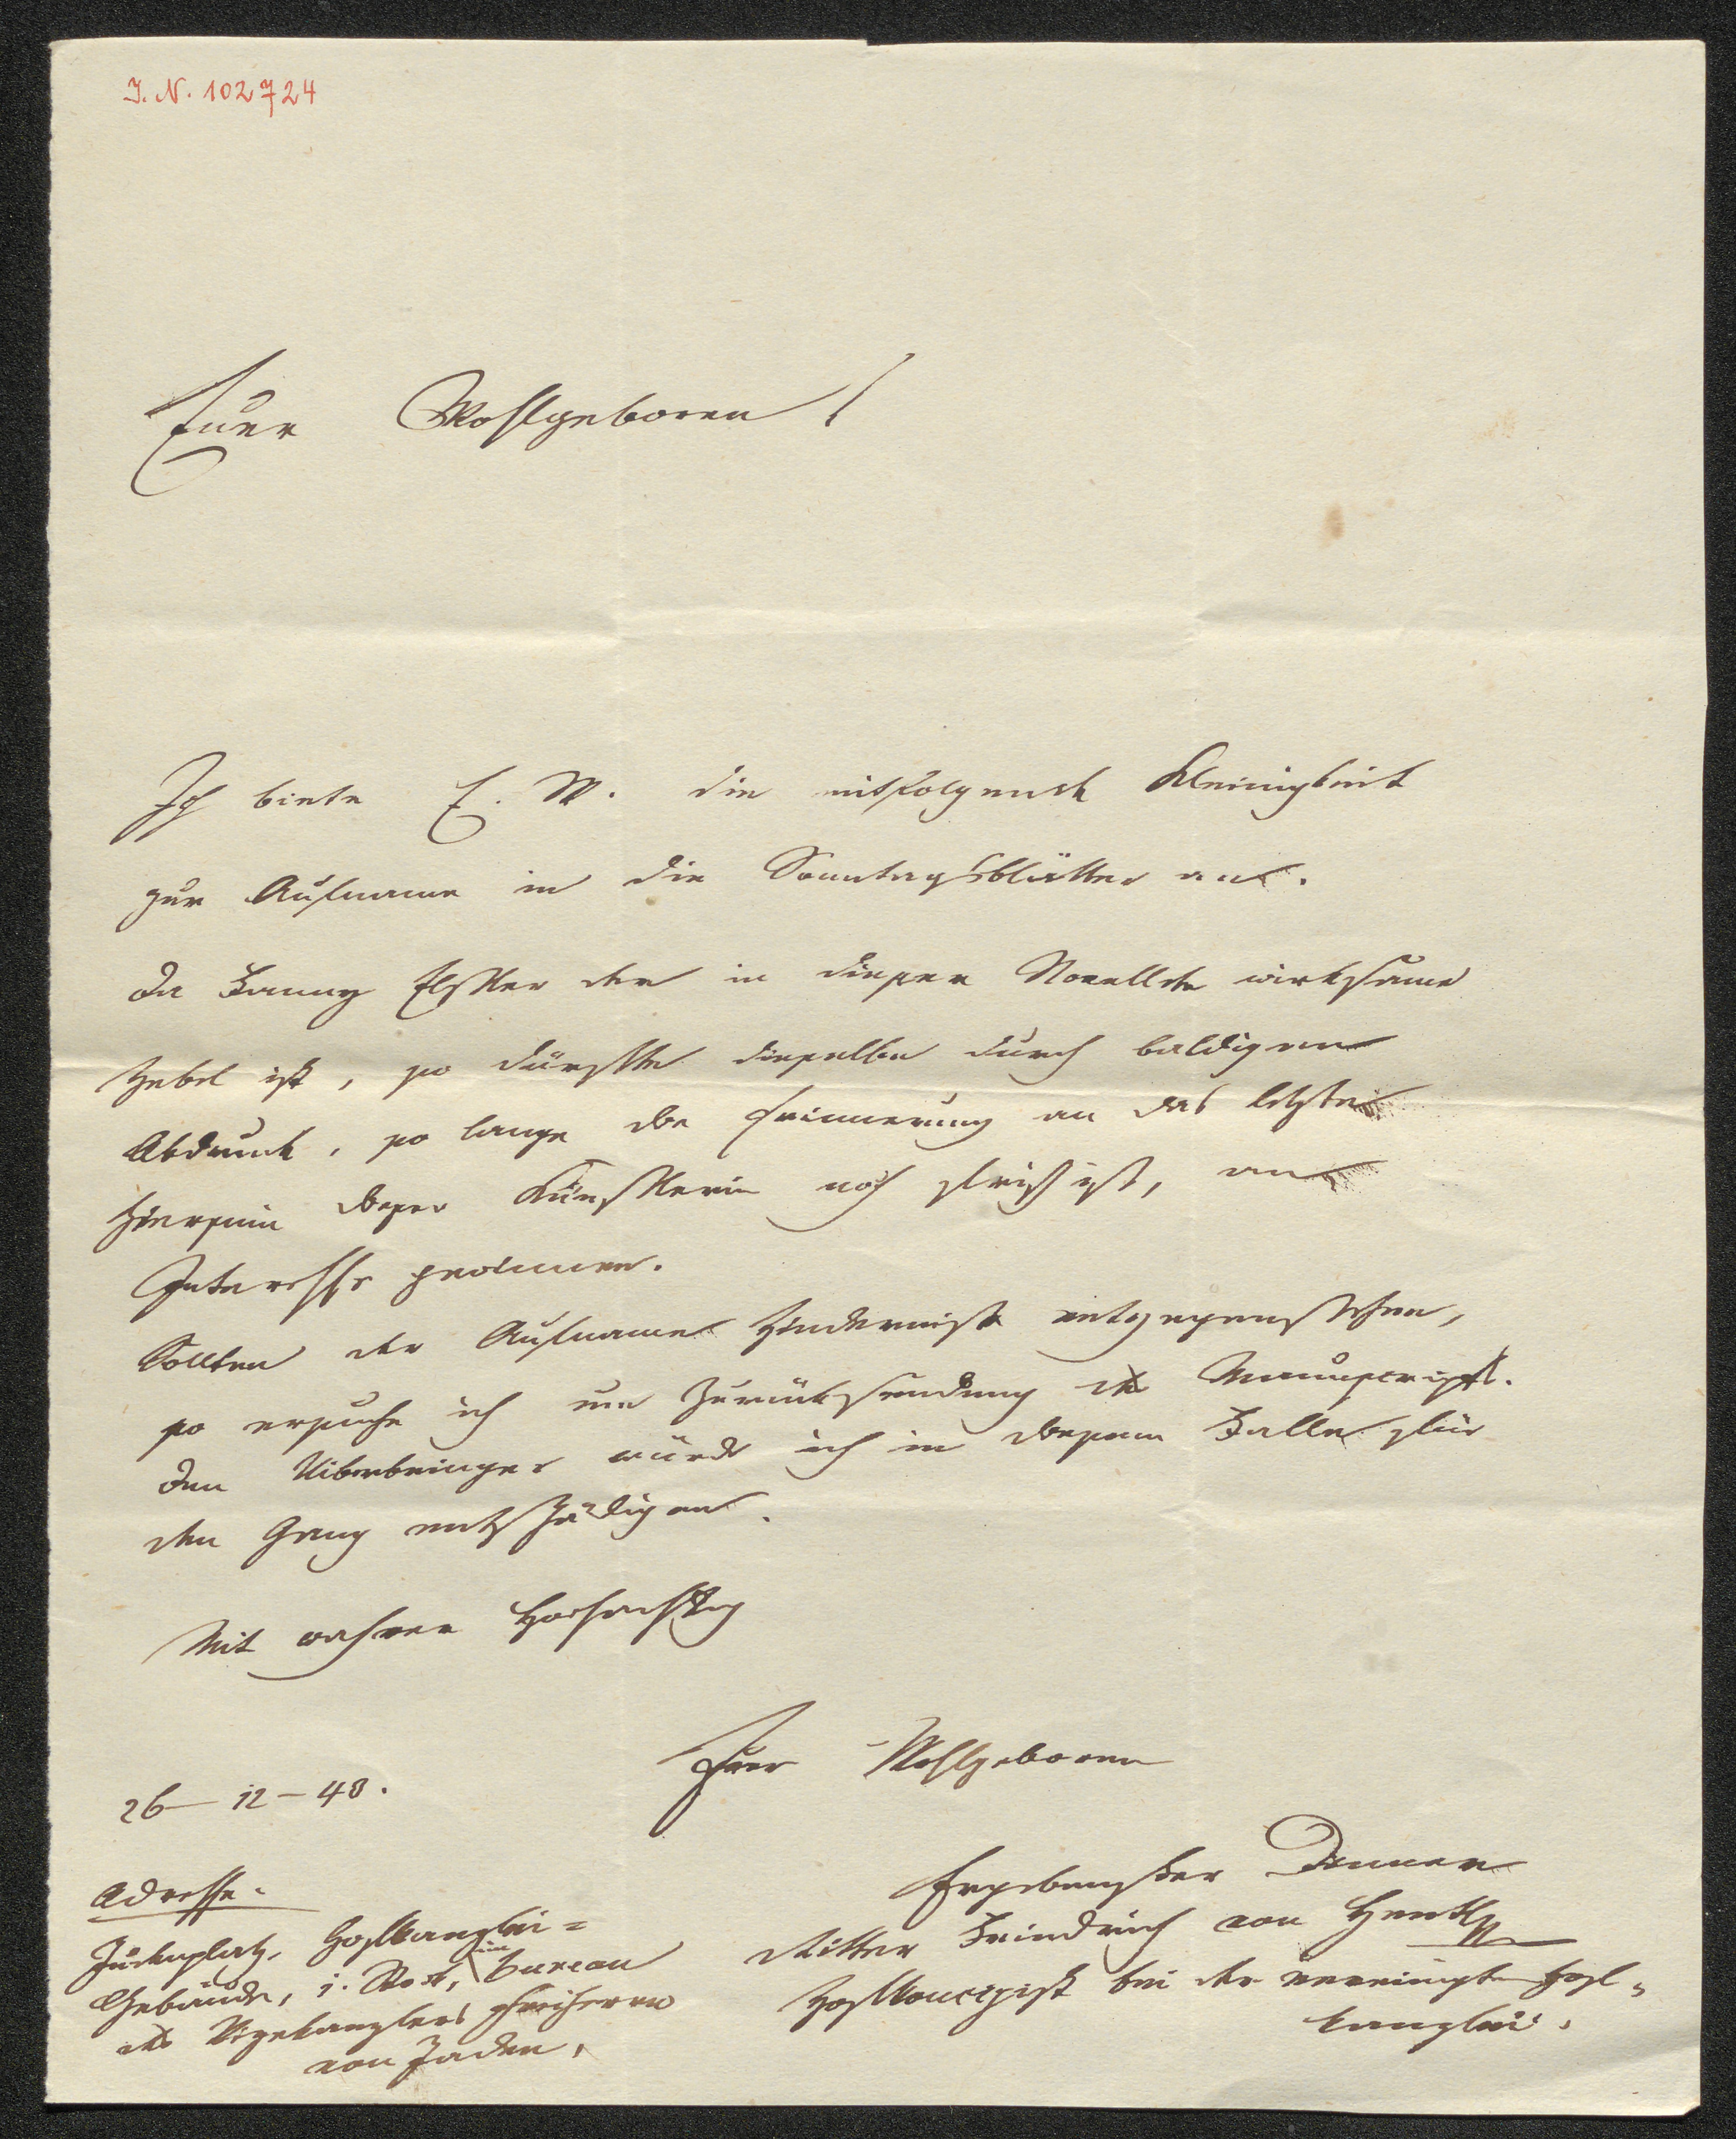 I. N. 102724
Euer Wohlgeboren!
Ich biete E. W. die mitfolgende Kleinigkeit
zur Aufname in die Sonntagsblätter an.
Da Fanny Elßler der in dieser Novellete wirksame
Hebel ist, so dürfte dieselbe durch baldigen
Abdruck, so lange die Erinnerung an das letzte
Hiersein dieser Künstlerin noch frisch ist, an
Interesse gewinnen.
Sollten der Aufname Hindernisse entgegenstehen,
so ersuche ich um Zurücksendung des Manuscripts.
Den Uiberbringer würde ich in diesem Falle für
den Gang entschädigen.
Mit wahrer Hochachtung
Euer Wohlgeboren
26 – 12 – 43.
Ergebenster Diener
Ritter Friedrich von
Hofkoncipist bei der vereinigten Hof-
kanzlei.
Adresse:
Judenplatz, Hofkanzlei=
Gebäude, 1. Stock, im Bureau
des Vizekanzlers Freiherrn
von